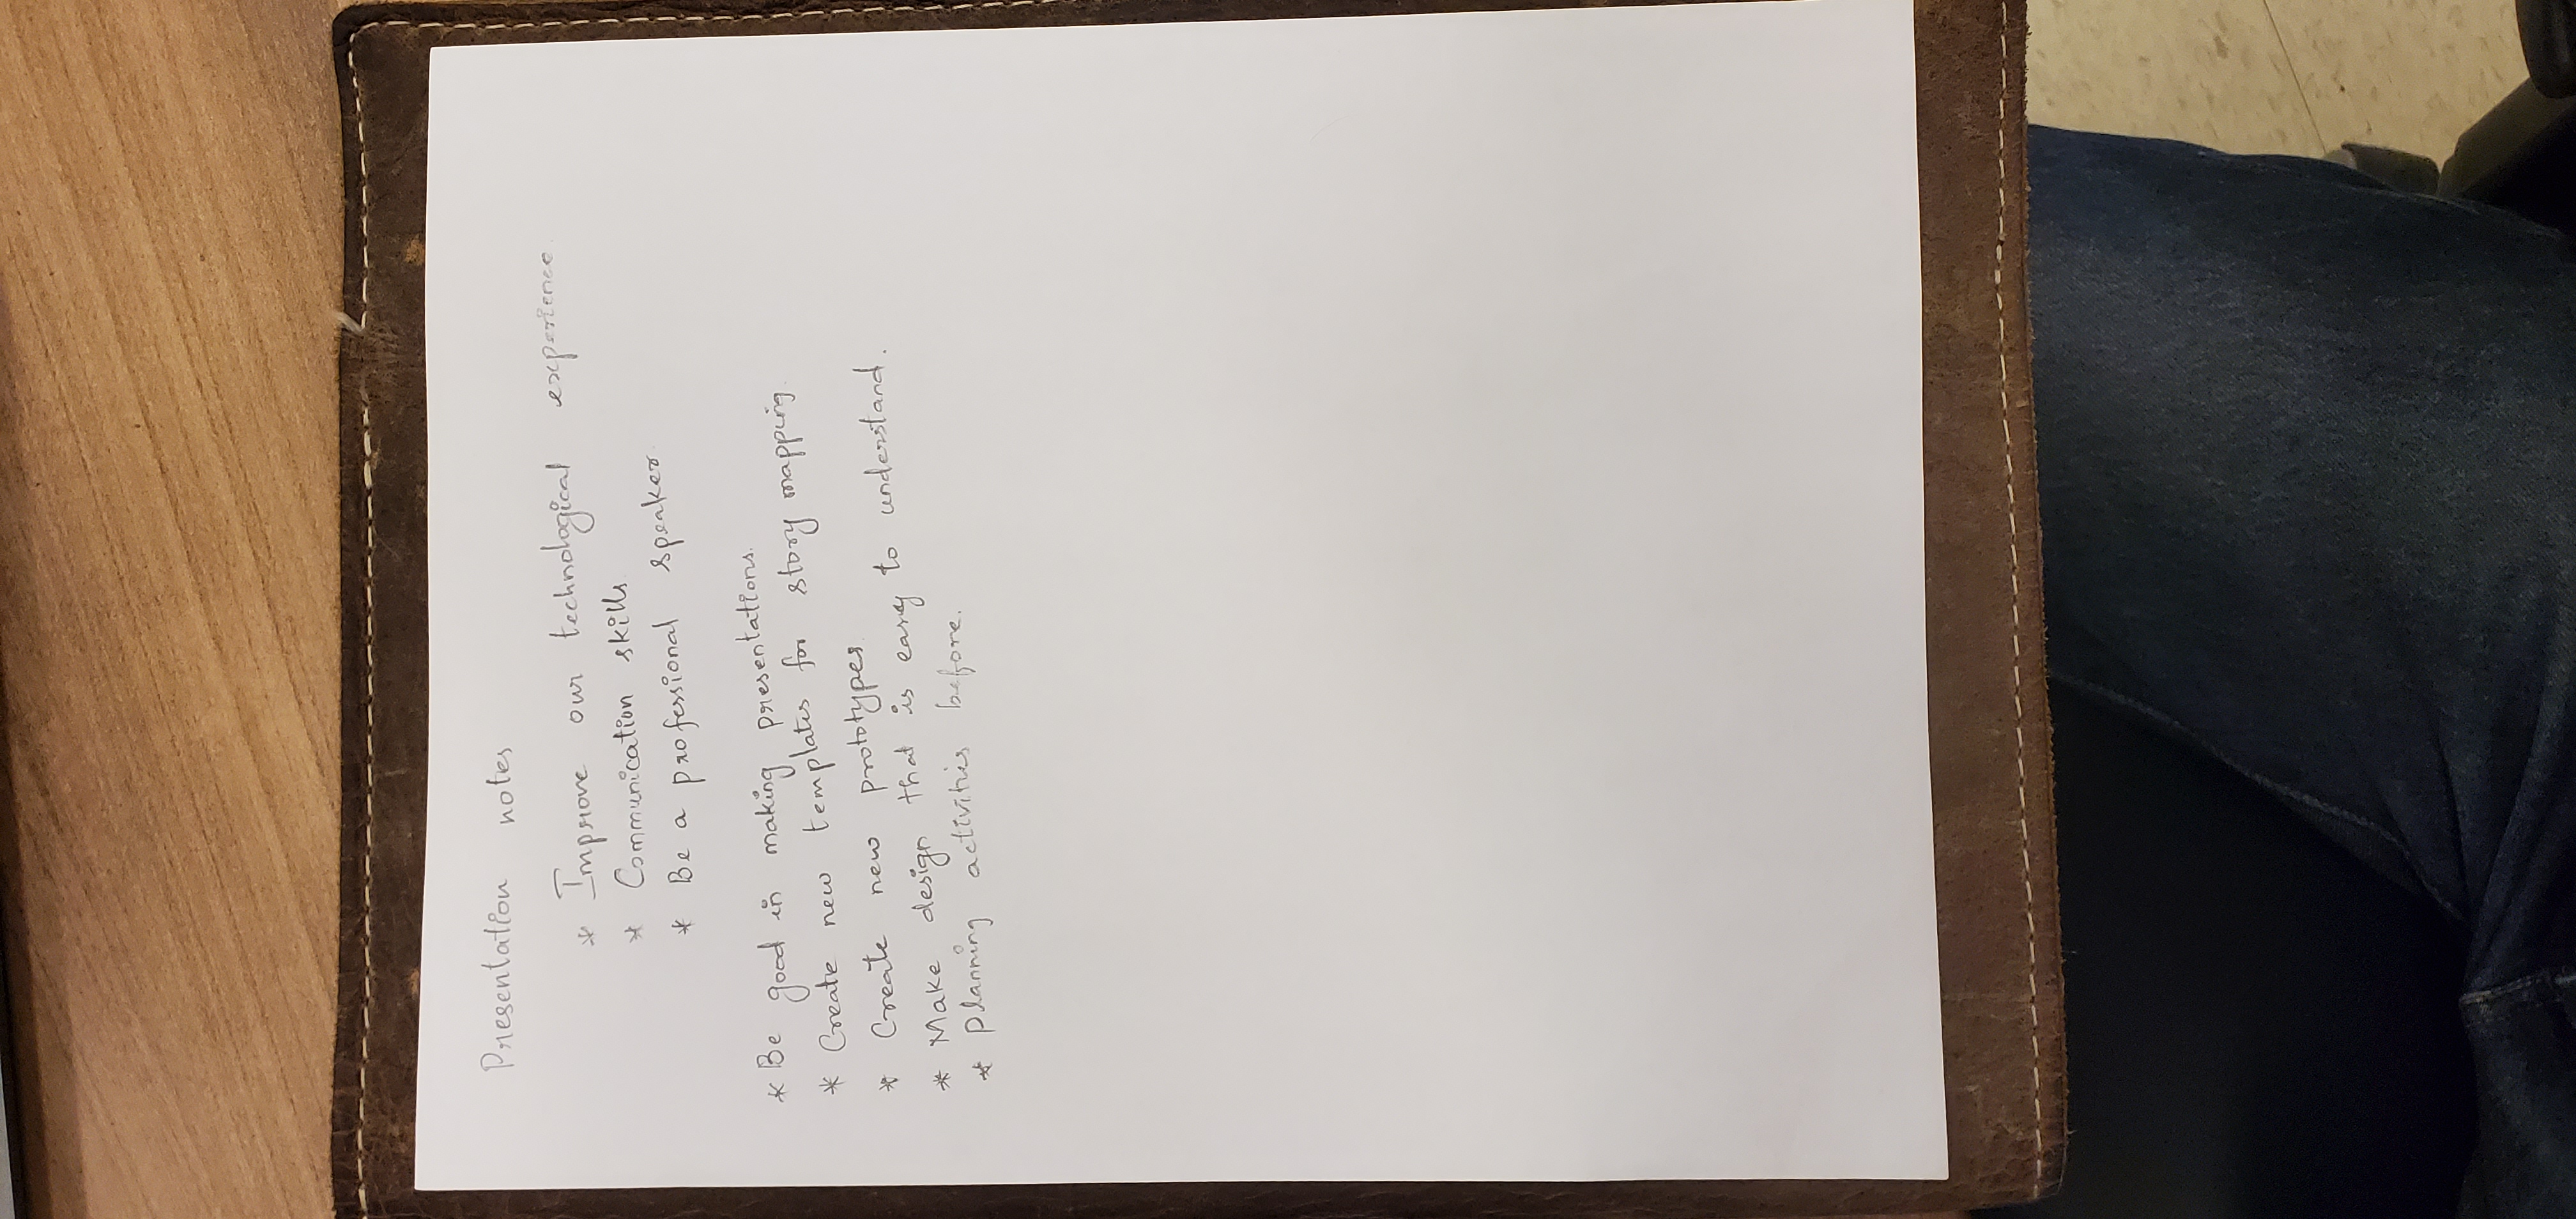 Presentation notes
* Improve our technological experience.
* Communication skills
* Be a professional speaker.
* Be good in making presentations.
* Create new templates for story mapping.
* Create new prototypes.
* Make design that is easy to understand.
* Planning activities before.